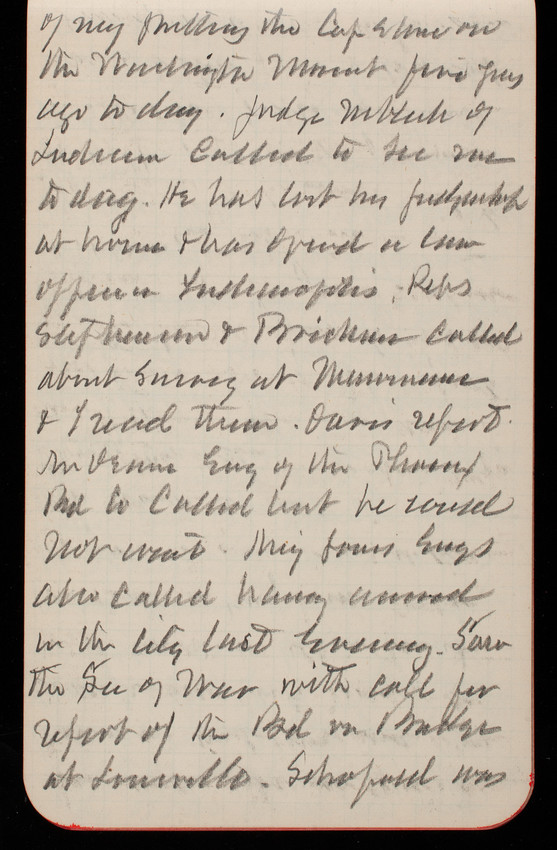 of my putting the Cap Stone on
the Washington Monmt five years
ago to day. Judge Niblack of
Indiana Called to See me
to day. He has lost his judgeship
at home & has opened a law
office in Indianapolis. Reps
Stephenson & Brickner Called
about Survey at Menominee
& I read them. Davis report.
Mr Eng of the Phoenix
Bd Co Called but he would
not wait. Maj Jones Engs
also Called having arrived
in the City last Evening. Saw
the Sec of War with call for
report of the Bd on Bridge
at Louisville. Schofield was